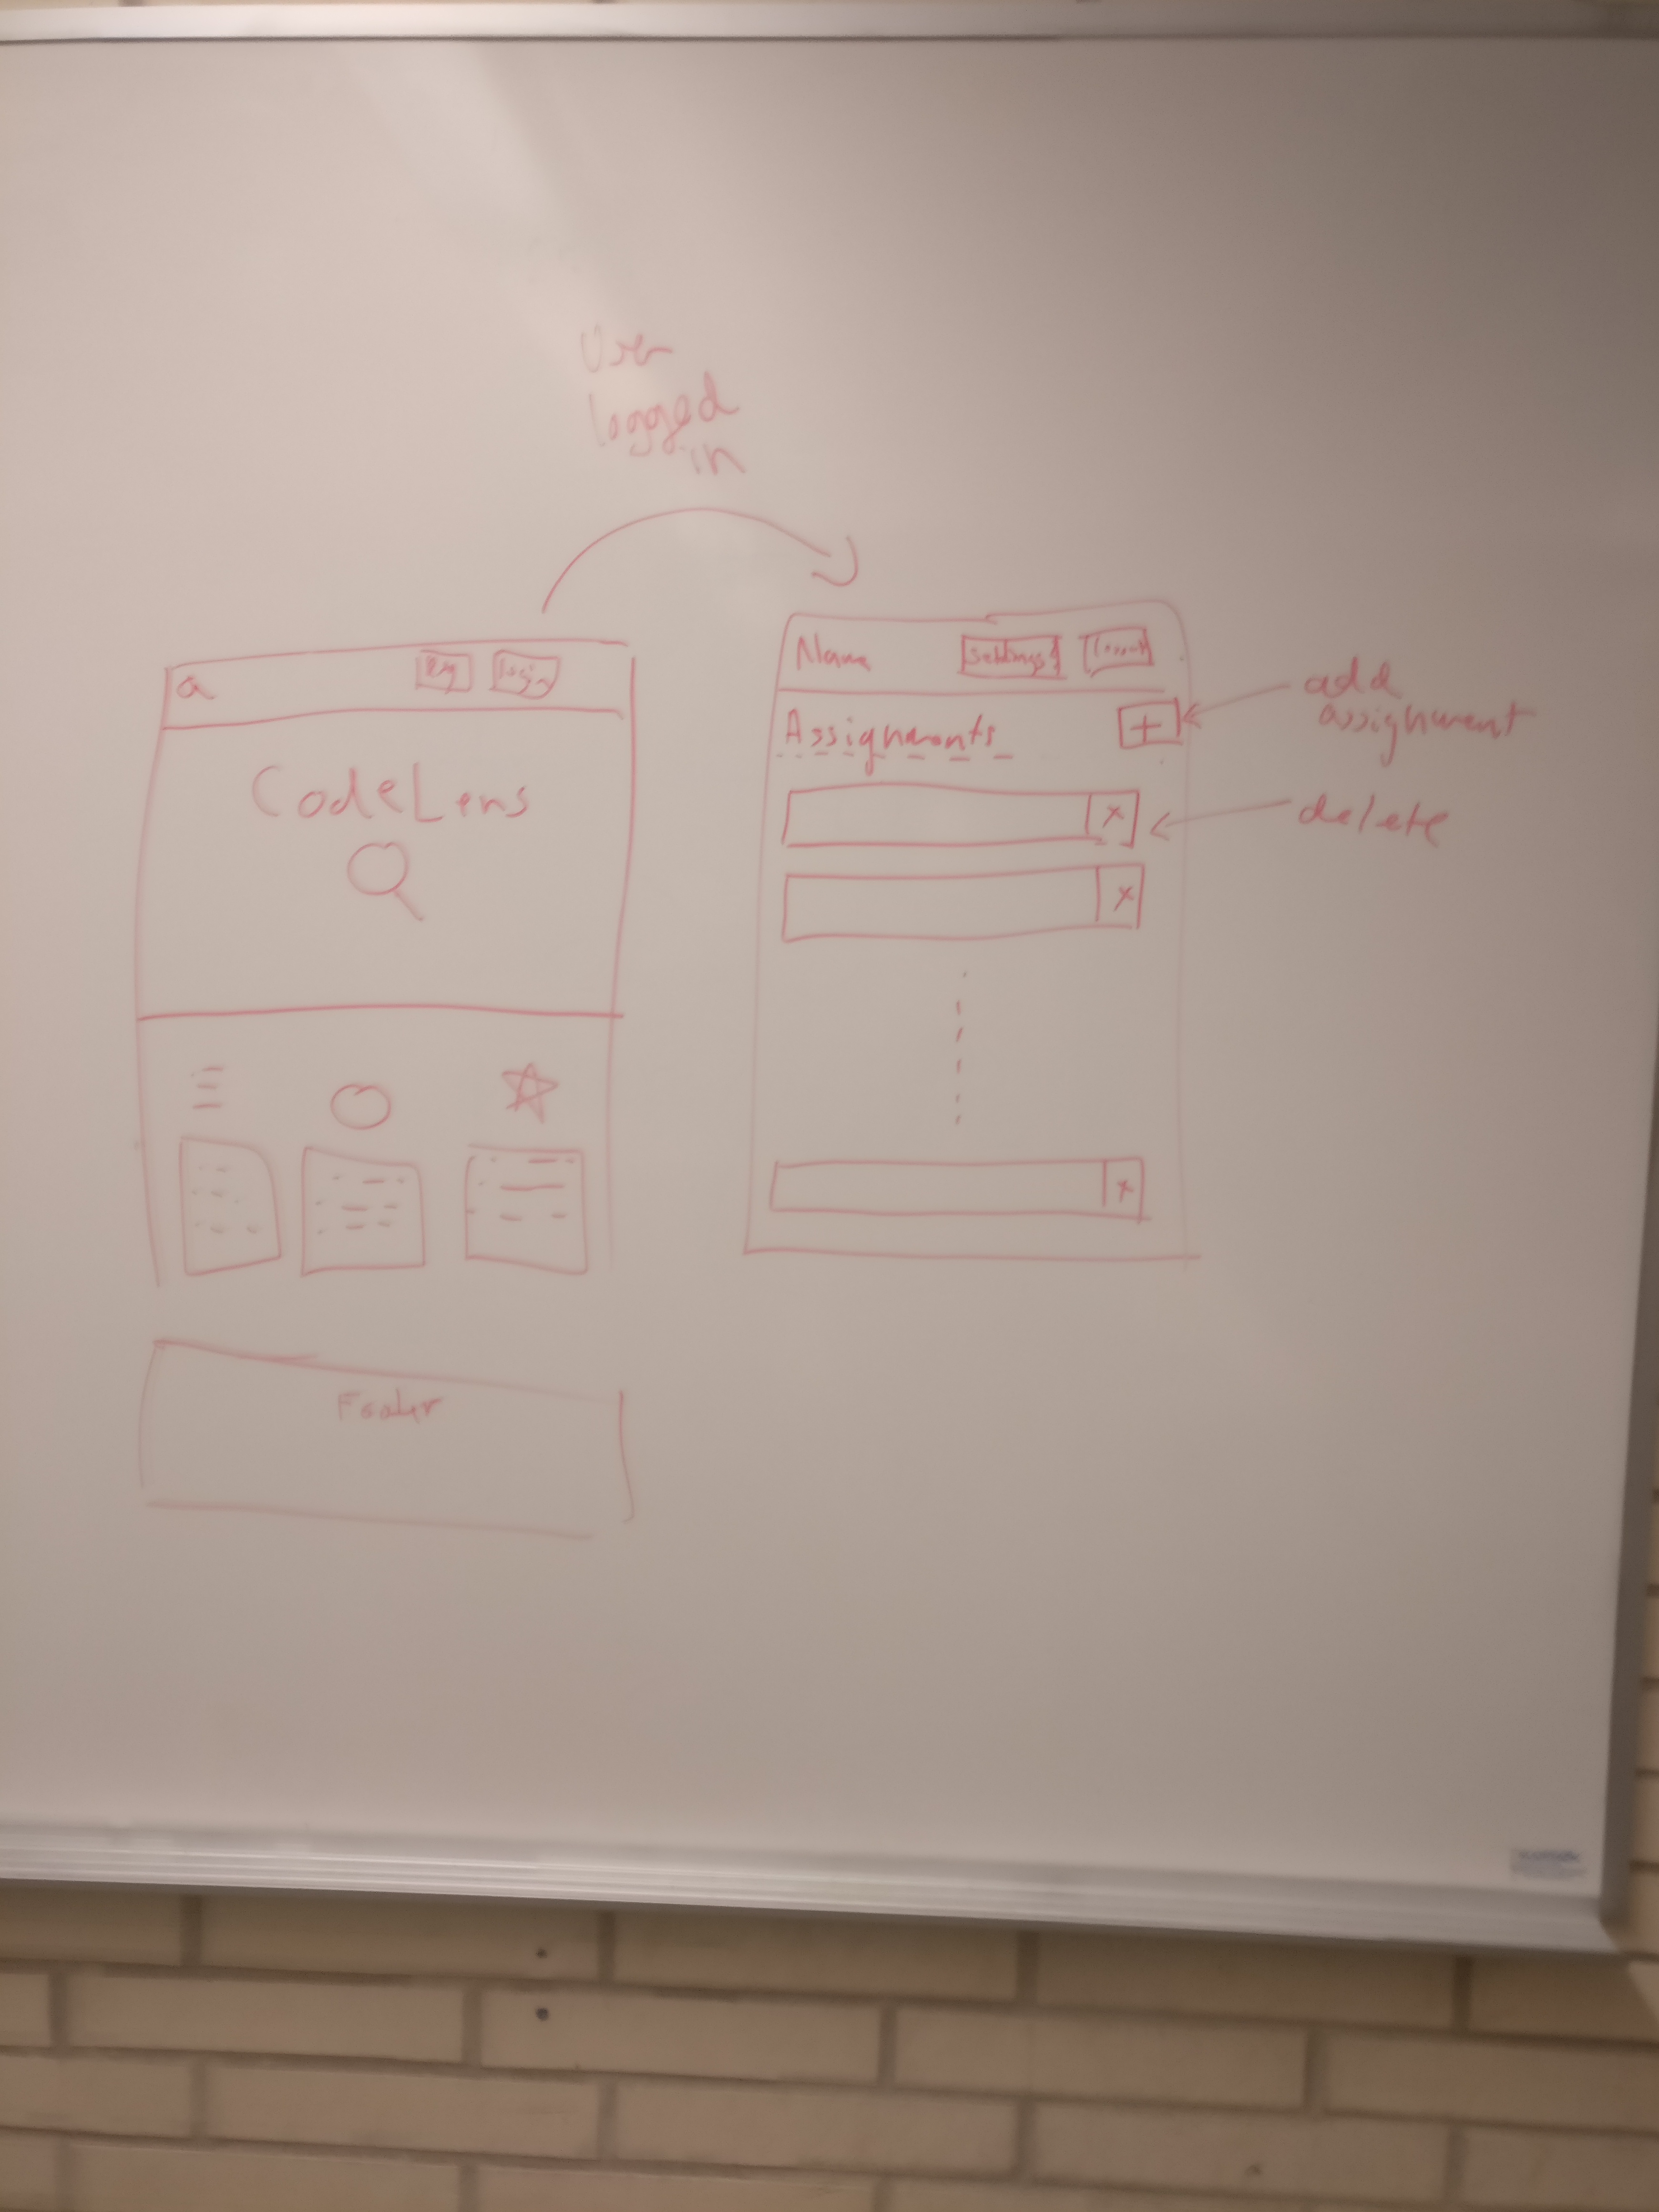 User
logged
in
a
Reg
login
CodeLens
Footer
Name
settings
Assignments
+
add
assignment
x
delete
x
x